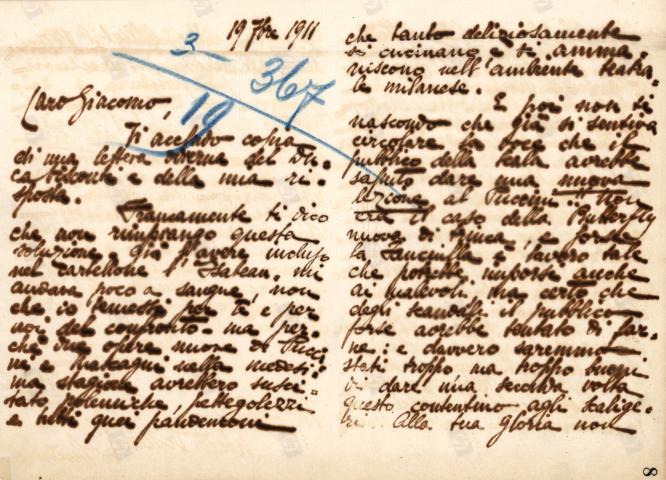 19 7bre 1911
3
367
19
Caro Giacomo,
Ti accludo copia
di una lettera odierna del Du-
ca Visconti e della mia ri-
sposta.
Francamente ti dico
che non rimpiango questa
soluzione. Già l'avere incluso
nel cartellone l'Isabeau, mi
andava poco a sangue, non
che io temessi per te e per
noi del confronto - ma per-
chè due opere nuove di Pucci-
ni e Mascagni nella medesi-
ma stagione avrebbero susci-
tato polemiche, pettegolezzi
e tutti quei
che tanto deliziosamente
si cucinano e si amma-
niscono nell'ambiente teatra-
le milanese.
E poi non ti
nascondo che già si sentiva
circolare la voce che il
pubblico della Scala avrebbe
saputo dare una nuova
lezione al Puccini! Non
era il caso della Butterfly
nuova di trinca, e forse
la Fanciulla è lavoro tale
che potrebbe imporsi anche
ai malevoli, ma certo che
degli scandalli il pubblico
forse avrebbe tentato di far-
ne: e davvero saremmo
stati troppo, ma troppo buoni
di dare una seconda volta
questo contentino agli scalige-
ri. Alla tua gloria non
8